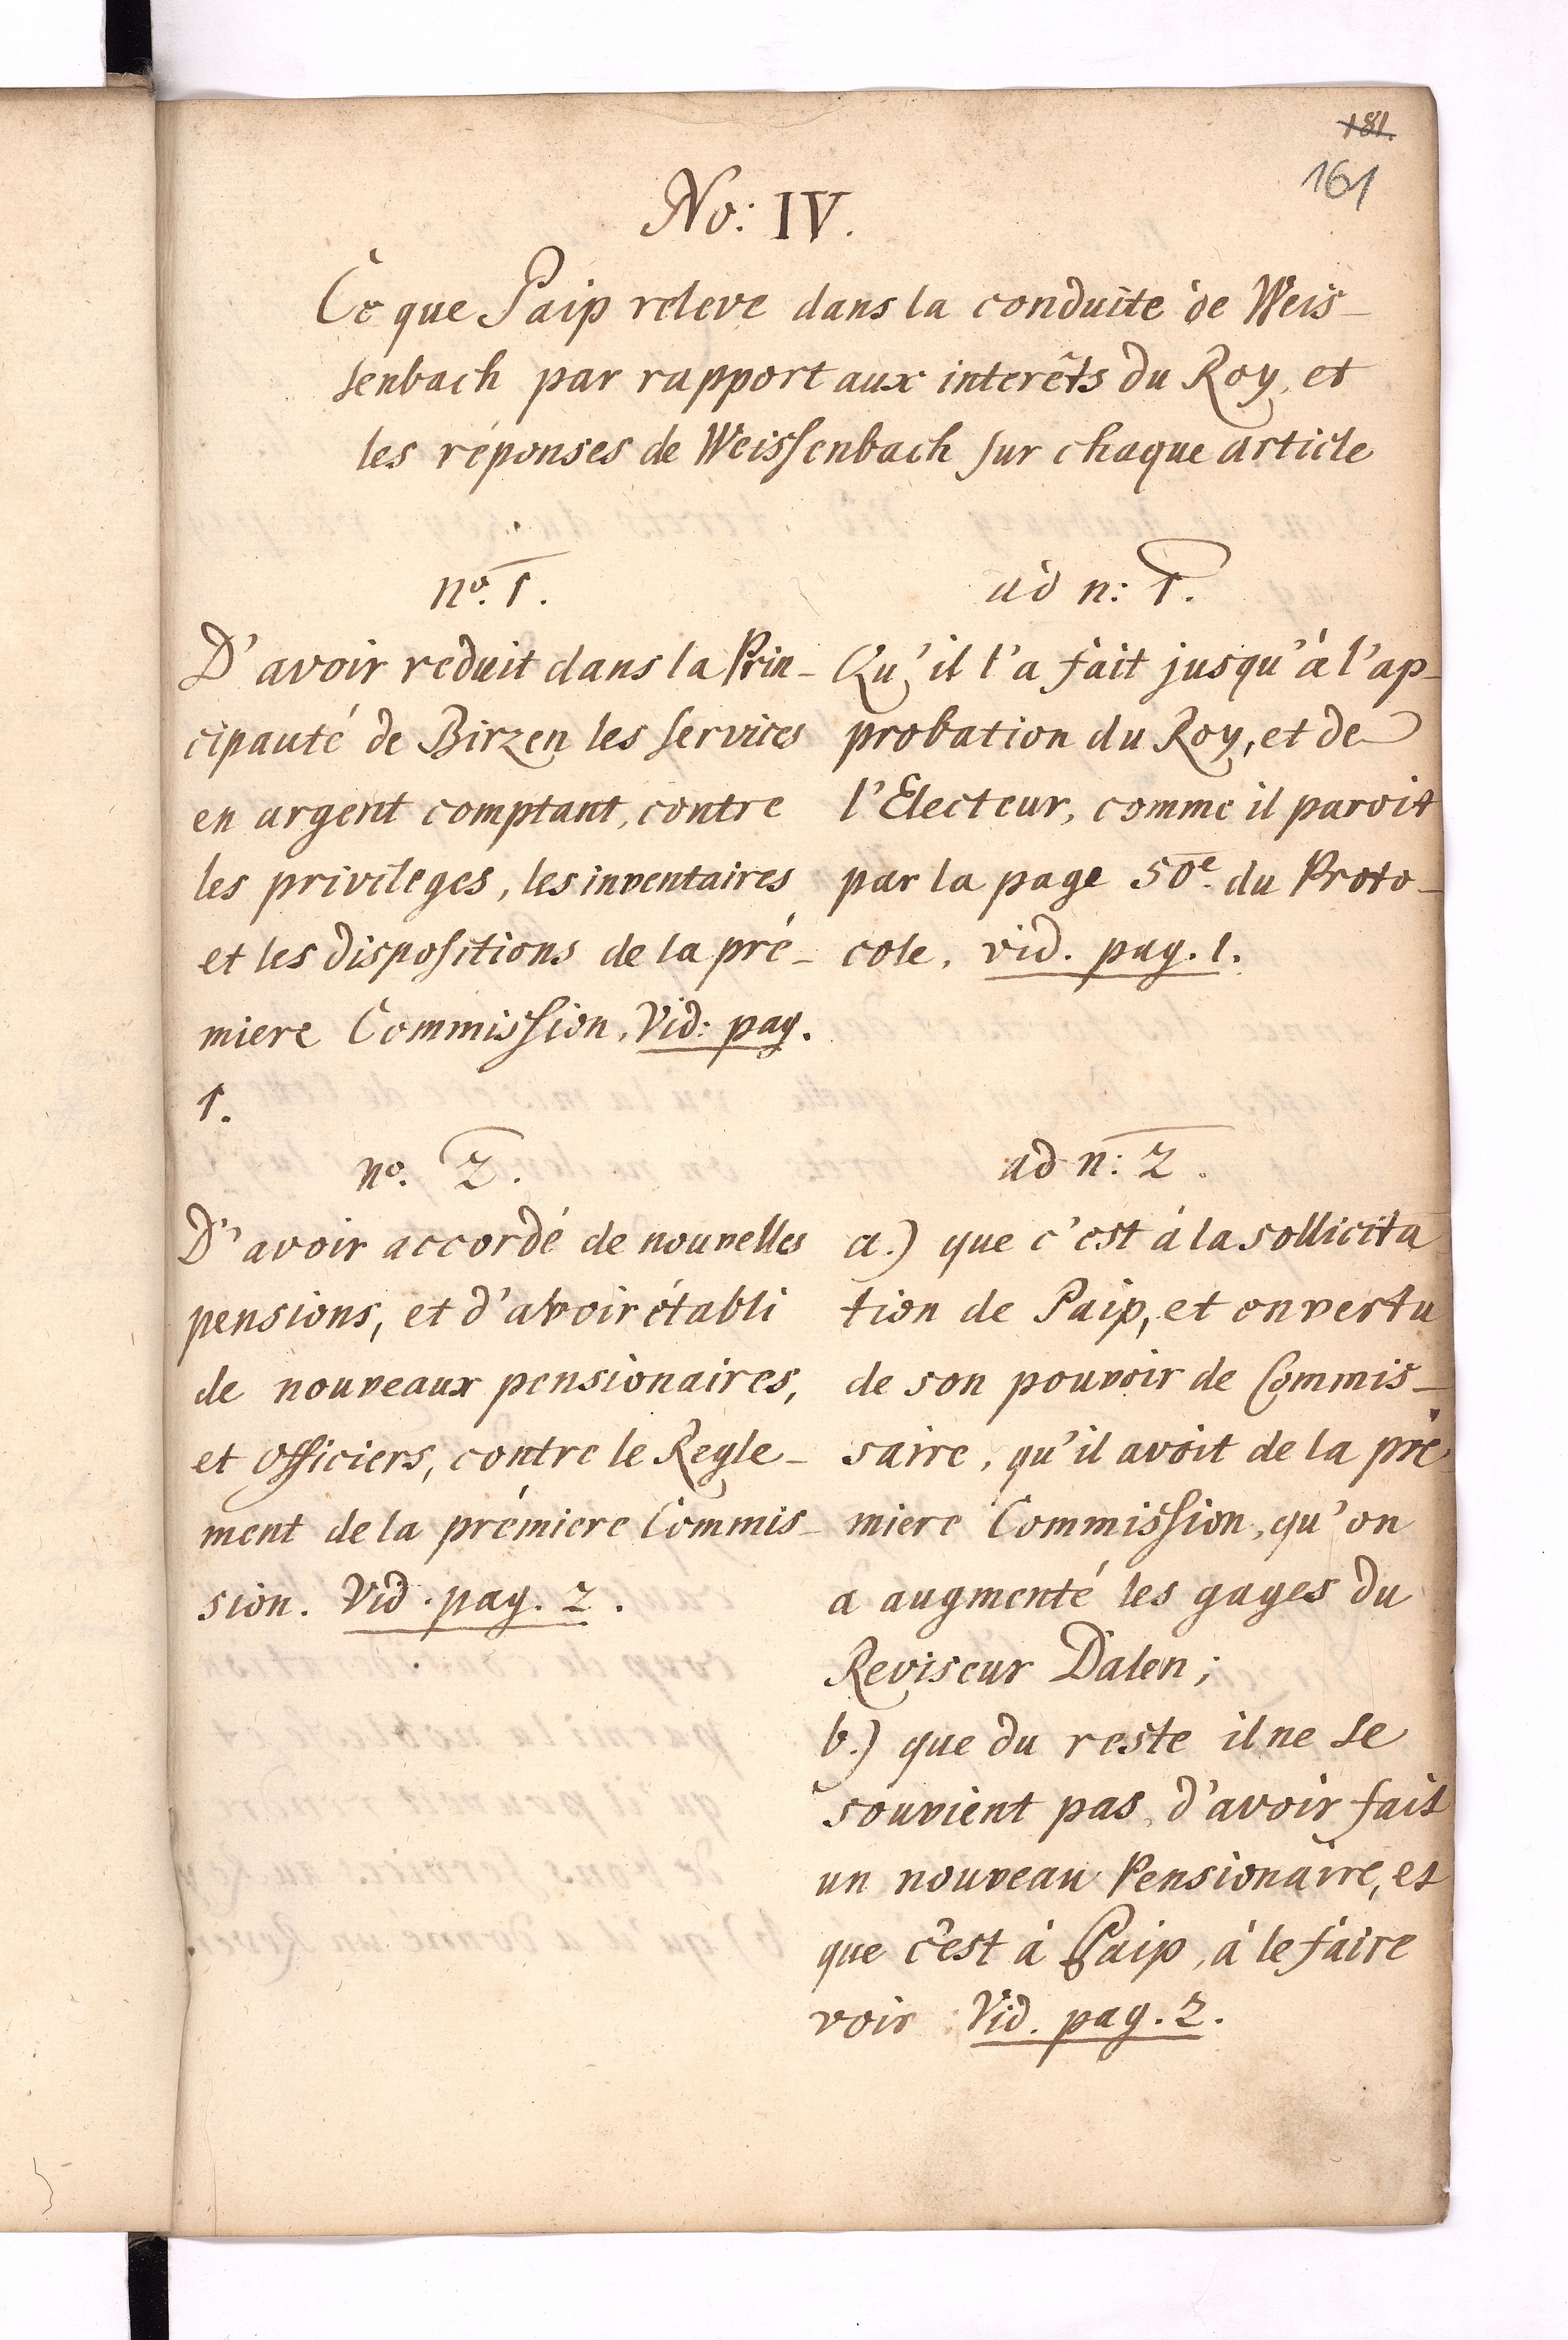 181.
161
No: IV.
Ce que Paip releve dans la conduite de Weis-
senbach par rapport aux interêts du Roy, et
les réponses de Weissenbach sur chaque article
no. 1.
D'avoir reduit dans la Prin-
cipauté de Birzen les services
en argent comptant, contre
les privileges, les inventaires
et les dispositions de la pré-
miere Commission, Vid: pag.
1.
no. 2.
D'avoir accordé de nouvelles
pensions, et d'avoir établi
de nouveaux pensionaires,
et officiers, contre le Regle-
ment de la prémiere Commis-
sion. Vid. pag. 2.
ad n: 1.
Qu'il l'a fait jusqu'à l'ap-
probation du Roy, et de
l'Electeur, comme il paroit
par la page 50e. du Proto-
cole, vid. pag. 1.
ad n: 2.
a.) que c'est à la sollicita
tion de Paip, et en vertu
de son pouvoir de Commis-
saire, qu'il avoit de la pré
miere Commission, qu'on
a augmenté les gages du
Reviseur Dalen;
b.) que du reste il ne se
souvient pas, d'avoir fait
un nouveau Pensionaire, et
que c'est à Paip, à le faire
voir Vid. pag. 2.